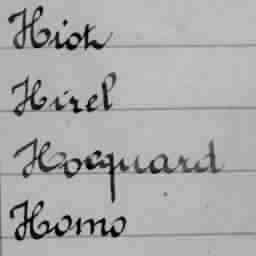 Hiot
Hirel
Hocquard
Homo